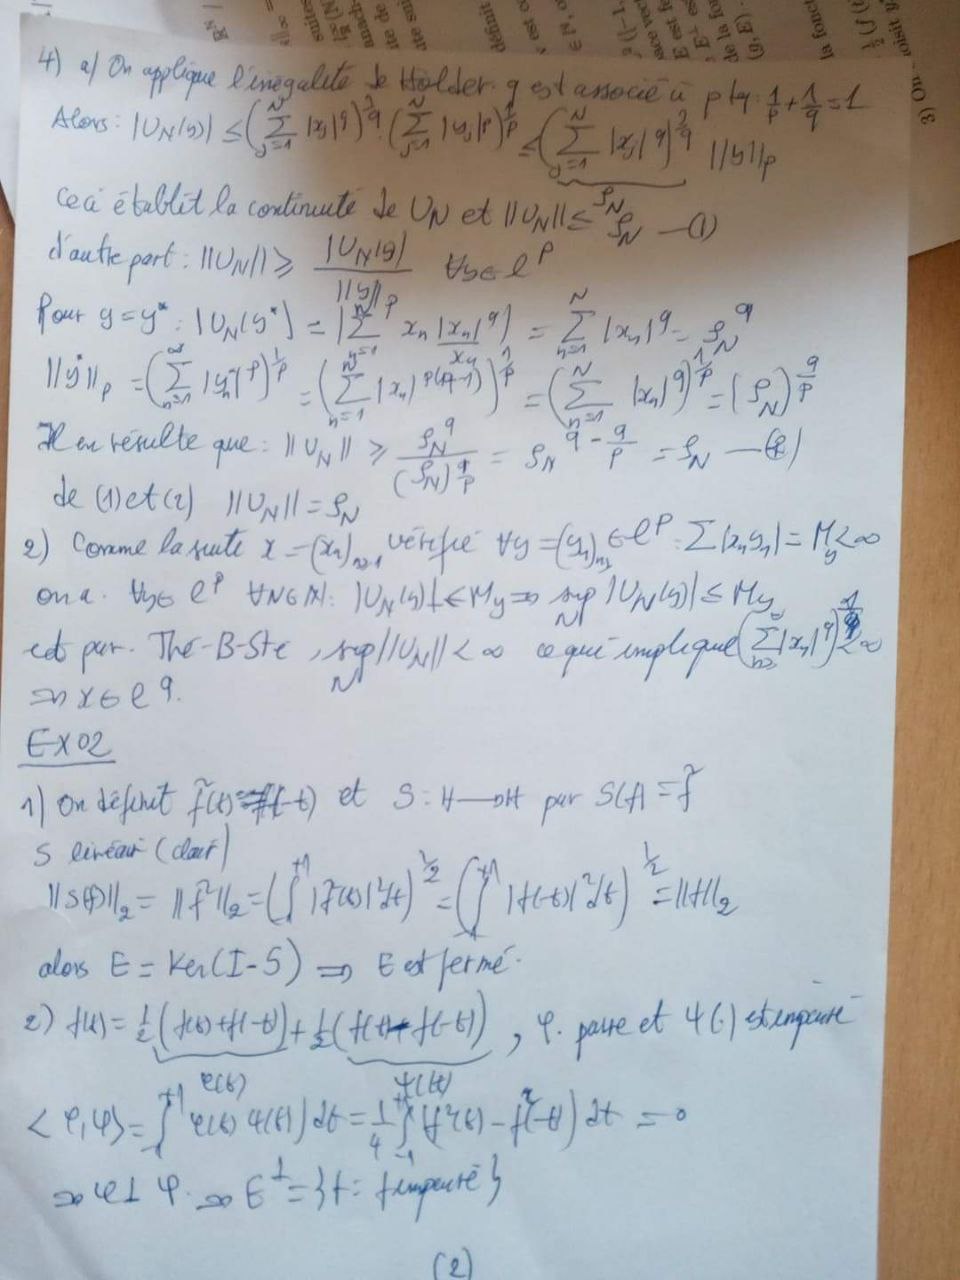 4) a/ On applique l'inégalité de Hölder. q est associé à p tq: 1/p + 1/q = 1
Alors: |U_N(y)| ≤ (∑_{j=1}^N |x_j|^q)^{1/q} . (∑_{j=1}^N |y_j|^p)^{1/p} ≤ (∑_{j=1}^N |x_j|^q)^{1/q} ||y||_p
ρ_N
Ceci établit la continuité de U_N et ||U_N|| ≤ ρ_N —(1)
d'autre part: ||U_N|| ≥ |U_N(y)| / ||y||_p ∀y ∈ l^p
Pour y = y*: |U_N(y*)| = |∑_{n=1}^N x_n |x_n|^q / x_n| = ∑_{n=1}^N |x_n|^q = ρ_N^q
||y*||_p = (∑_{n=1}^∞ |y_n*|^p)^{1/p} = (∑_{n=1}^N |x_n|^{p(q-1)})^{1/p} = (∑_{n=1}^N |x_n|^q)^{1/p} = (ρ_N)^{q/p}
Il en résulte que: ||U_N|| ≥ ρ_N^q / (ρ_N)^{q/p} = ρ_N^{q - q/p} = ρ_N —(2)
de (1) et (2) ||U_N|| = ρ_N
2) Comme la suite x = (x_n)_{n≥1} vérifie ∀y = (y_n)_{n≥1} ∈ l^p: ∑|x_n y_n| = M_y < ∞
on a. ∀y ∈ l^p ∀N ∈ ℕ: |U_N(y)| ≤ M_y ⇒ sup_N |U_N(y)| ≤ M_y
et par. Thé-B-Ste, sup_N ||U_N|| < ∞ ce qui implique (∑|x_n|^q)^{1/q} < ∞
⇒ x ∈ l^q.
EX02
1) On définit f̃(t) = f(-t) et S: H → H par S(f) = f̃
S linéair (clair)
||S(f)||_2 = ||f̃||_2 = (∫_{-1}^{+1} |f̃(t)|² dt)^{1/2} = (∫_{-1}^{+1} |f(-t)|² dt)^{1/2} = ||f||_2
alors E = Ker(I-S) ⇒ E est fermé.
2) f(t) = 1/2 (f(t)+f(-t)) + 1/2 (f(t) - f(-t)), φ. paire et ψ(.) est impaire
φ(t) ψ(t)
<φ,ψ> = ∫_{-1}^{+1} φ(t) ψ(t) dt = 1/4 ∫_{-1}^{+1} (f²(t) - f²(-t)) dt = 0
⇒ φ ⊥ ψ. ⇒ E^⊥ = {f: f impaire}
(2)